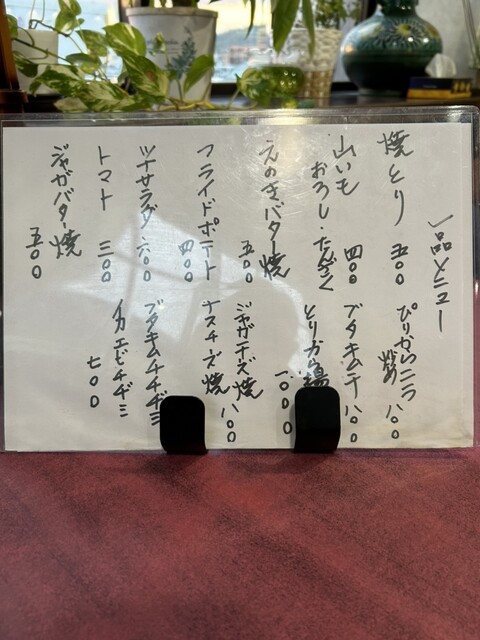 一品メニュー
焼とり 五〇〇
山いも
おろし・たんざく 四〇〇
えのきバター焼 五〇〇
フライドポテト 四〇〇
ツナサラダ 六〇〇
トマト 三〇〇
ジャガバター焼 五〇〇
ぴりからニラ
炒め 八〇〇
ブタキムチ 八〇〇
とりから揚 一〇〇〇
ジャガチーズ焼 八〇〇
ナスチーズ焼
ブタキムチチヂミ
イカエビチヂミ 七〇〇